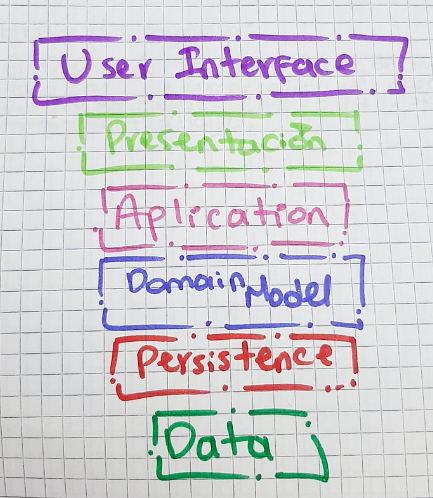 User Interface
Presentación
Aplication
Domain Model
Persistence
Data